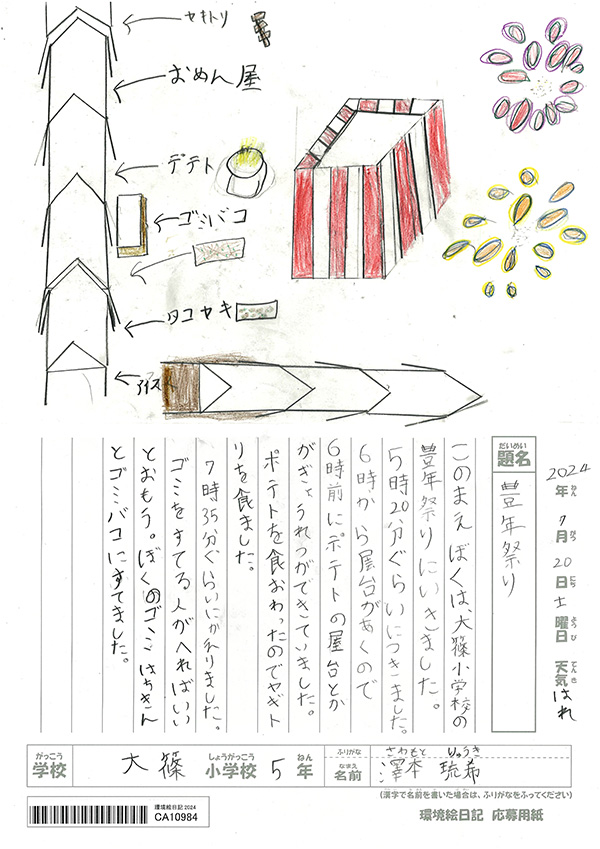 ヤキトリ
おめん屋
デテト
ゴミバコ
タコヤキ
2024年ねん 7月がつ 20日にち 土曜日ようび 天気てんき はれ
だいめい
題名
豊年祭り
このまえぼくは、大篠小学校の
豊年祭りにいきました。
5時20分ぐらいにつきました。
6時から屋台があくので
6時前にポテトの屋台とか
がぎょうれつができていました。
ポテトを食おわったのでヤギト
リを食ました。
7時35分ぐらいにかえりました。
ゴミをすてる人がへればいい
とおもう。ぼくのゴミはちきん
とゴミバコにすてました。
がっこう
学校
大篠 小学校しょうがっこう 5年ねん
ふりがな さわもと りゅうき
なまえ
名前 澤本 琉希
(漢字で名前を書いた場合は、ふりがなをふってください)
環境絵日記 2024
CA10984
環境絵日記 応募用紙